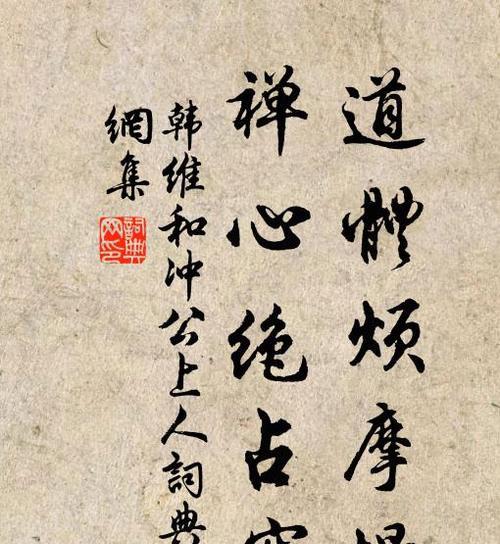 道體煩摩
禅心绝占
韩维和冲公上人詞典
網集
詞典網印